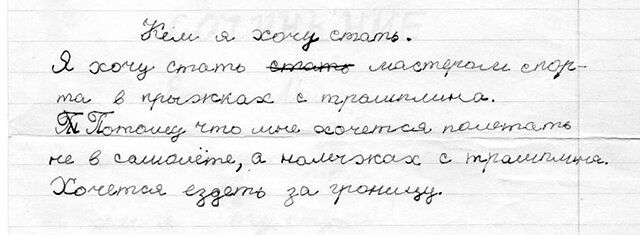 Кем я хочу стать.
Я хочу стать стать мастером спор-
та в прыжках с трамплина.
Потому что мне хочется полетать
не в самолёте, а на лыжах с трамплина.
Хочется ездеть за гроницу.